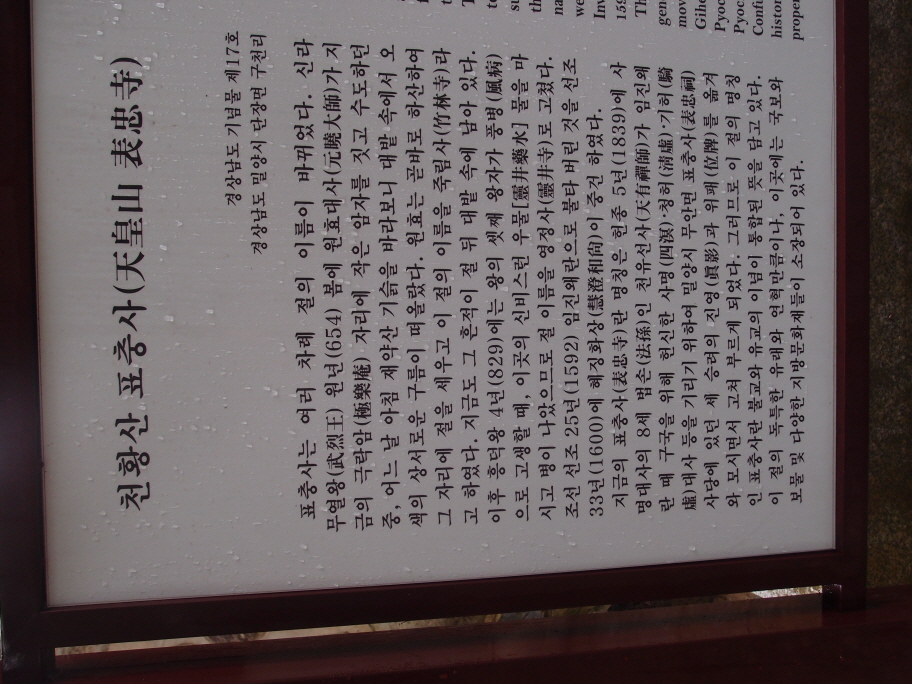 천황산 표충사(天皇山 表忠寺)
경상남도 기념물 제17호
경상남도 밀양시 단장면 구천리
표충사는 여러 차례 절의 이름이 바뀌었다. 신라
무열왕(武烈王) 원년(654) 봄에 원효대사(元曉大師)가 지
금의 극락암(極樂庵) 자리에 작은 암자를 짓고 수도하던
중, 어느 날 아침 재약산 기슭을 바라보니 대밭 속에서 오
색의 상서로운 구름이 떠올랐다. 원효는 곧바로 하산하여
그 자리에 절을 세우고 이 절의 이름을 죽림사(竹林寺)라
고 하였다. 지금도 그 흔적이 절 뒤 대밭 속에 남아 있다.
이후 흥덕왕 4년(829)에는 왕의 셋째 왕자가 풍병(風病)
으로 고생할 때, 이곳의 신비스런 우물[靈井藥水] 물을 마
시고 병이 나았으므로 절 이름을 영정사(靈井寺)로 고쳤다.
조선 선조 25년(1592) 임진왜란으로 불타 버린 것을 선조
33년(1600)에 혜징화상(慧澄和尙)이 중건 하였다.
지금의 표충사(表忠寺)란 명칭은 헌종 5년(1839)에 사
명대사의 8세 법손(法孫)인 천유선사(天有禪師)가 임진왜
란 때 구국을 위해 헌신한 사명(四溟)·청허(淸虛)·기허(騎
虛)대사 등을 기리기 위하여 밀양시 무안면 표충사(表忠祠)
사당에 있던 세 승려의 진영(眞影)과 위패(位牌)를 옮겨
와 모시면서 고쳐 부르게 되었다. 그러므로 이 절의 명칭
인 표충사란 불교와 유교의 이념이 통합된 뜻을 담고 있다.
이 절의 독특한 유래와 연혁만큼이나, 이곳에는 국보와
보물 및 다양한 지방문화재들이 소장되어 있다.
we
Inv
159
Th
gen
mov
Gihe
Pyoc
Pyoc
Confu
histor
proper